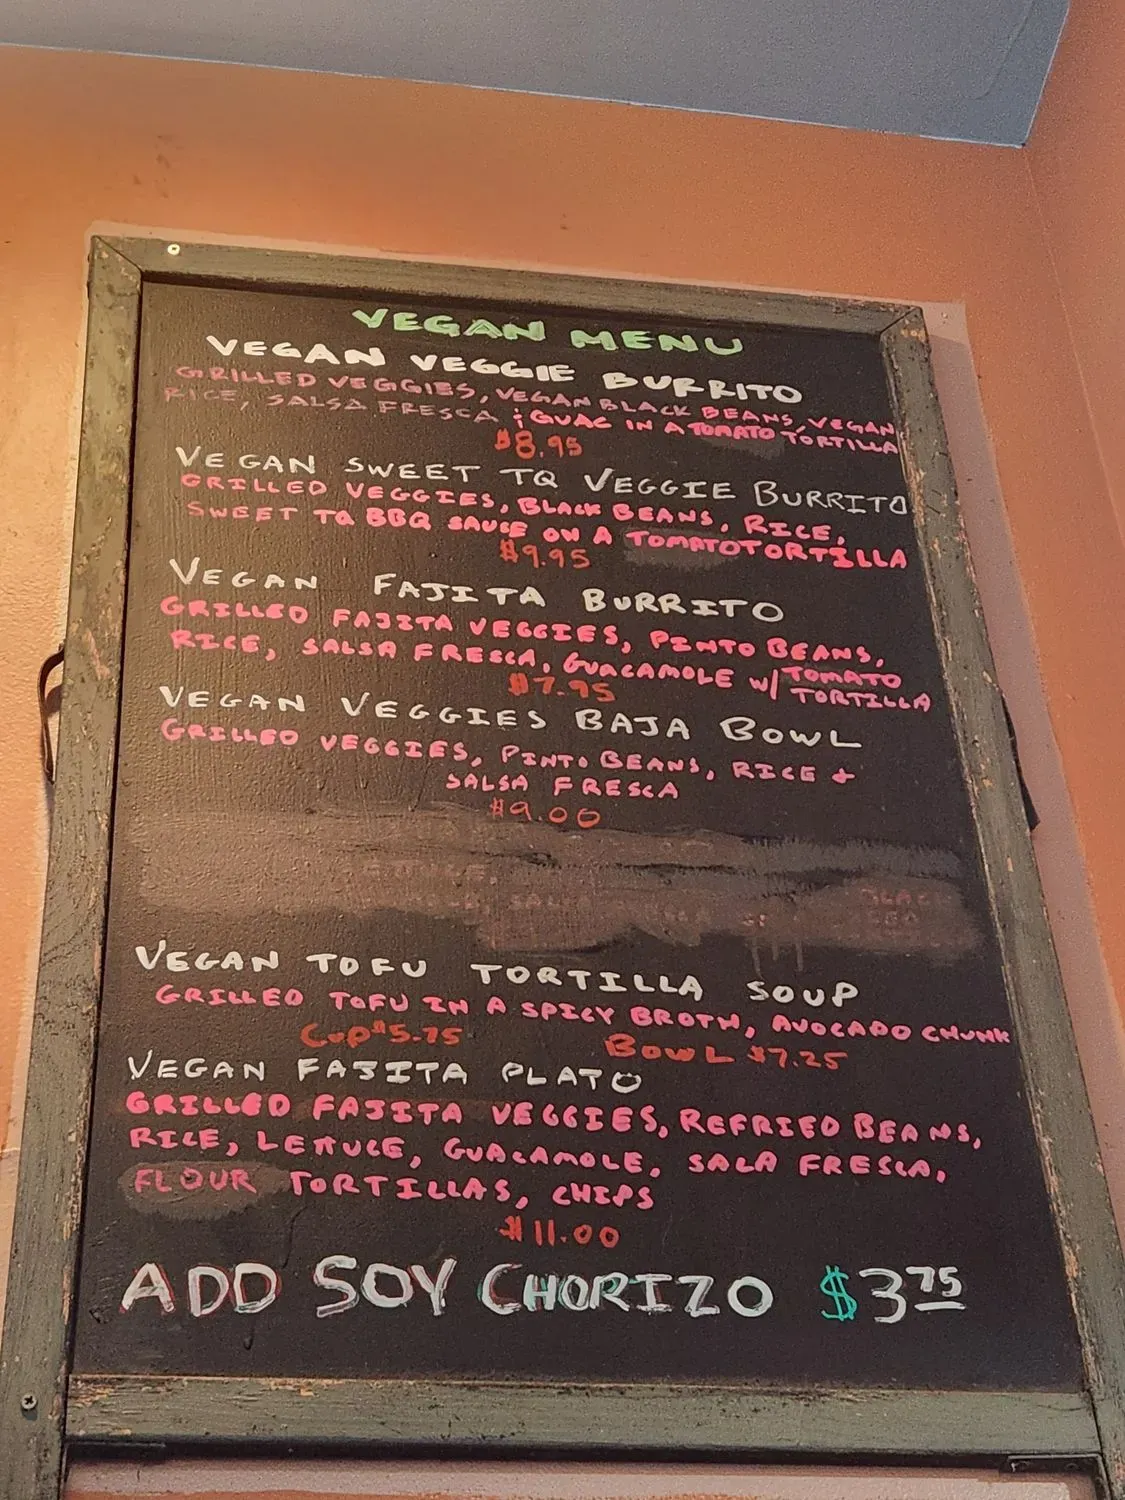 VEGAN MENU
VEGAN VEGGIE BURRITO
GRILLED VEGGIES, VEGAN BLACK BEANS, VEGAN
RICE, SALSA FRESCA & GUAC IN A TOMATO TORTILLA
$8.95
VEGAN SWEET TQ VEGGIE BURRITO
GRILLED VEGGIES, BLACK BEANS, RICE,
SWEET TQ BBQ SAUSE ON A TOMATO TORTILLA
$9.95
VEGAN FAJITA BURRITO
GRILLED FAJITA VEGGIES, PINTO BEANS,
RICE, SALSA FRESCA, GUACAMOLE W/ TOMATO
TORTILLA
$7.95
VEGAN VEGGIES BAJA BOWL
GRILLED VEGGIES, PINTO BEANS, RICE &
SALSA FRESCA
$9.00
VEGAN TOFU TORTILLA SOUP
GRILLED TOFU IN A SPICY BROTH, AVOCADO CHUNK
CUP $5.75 BOWL $7.25
VEGAN FAJITA PLATO
GRILLED FAJITA VEGGIES, REFRIED BEANS,
RICE, LETTUCE, GUACAMOLE, SALA FRESCA,
FLOUR TORTILLAS, CHIPS
$11.00
ADD SOY CHORIZO $3.75